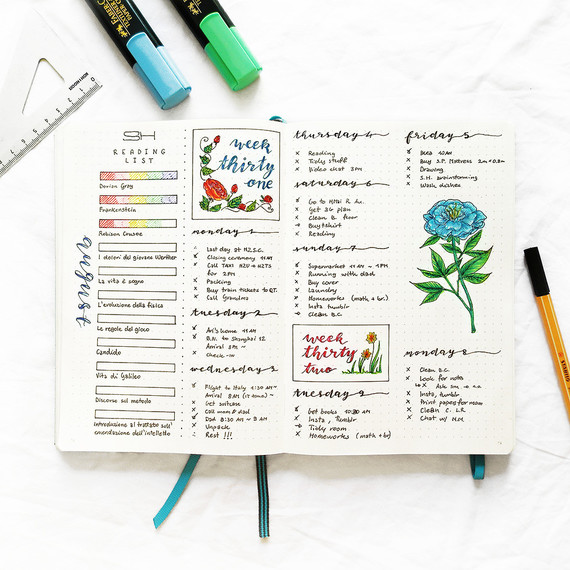 august
READING
LIST
Dorian Gray
Frankenstein
Robison Crusoe
I dolori del giovane Werther
La vita è sogno
L'evoluzione della fisica
Le regole del gioco
Candido
Vita di Galileo
Discorso sul metodo
Introduzione al trattato sull'
emendazione dell'intelletto
week
thirty
one
monday 1
Last day at H2SC.
Closing ceremony 11AM
Call TAXI H2U → H2TS
for 2PM
Packing
Buy train tickets to QT.
Call Grandma
tuesday 2
Ari's home 11 AM
Arrival 3PM
Check-in
wednesday 3
Flight to Italy 1:30 AM
Get suitcase
Call mom & dad
Unpack
Rest !!!
thursday 4
Reading
Tidy stuff
Video chat 3PM
saturday 6
Get 3G plan
Clean B. floor
Buy tshirt
Reading
sunday 7
Supermarket 11AM - 1PM
Running with dad
Buy cover
Laundry
Homeworks (math + gr.)
Insta tumblr
Clean B.C.
week
thirty
two
tuesday 9
Get books 10:30 AM
Insta, tumblr
Tidy room
Homeworks (math + gr)
friday 5
Ikea 10AM
Drawing
S.H. brainstorming
Wash dishes
monday 8
Clean B.C.
Look for notes
Insta, tumblr
Print papers for mom
Clean C. LR
Chat w/ M.M.
FABER-CASTELL
TEXTLINER